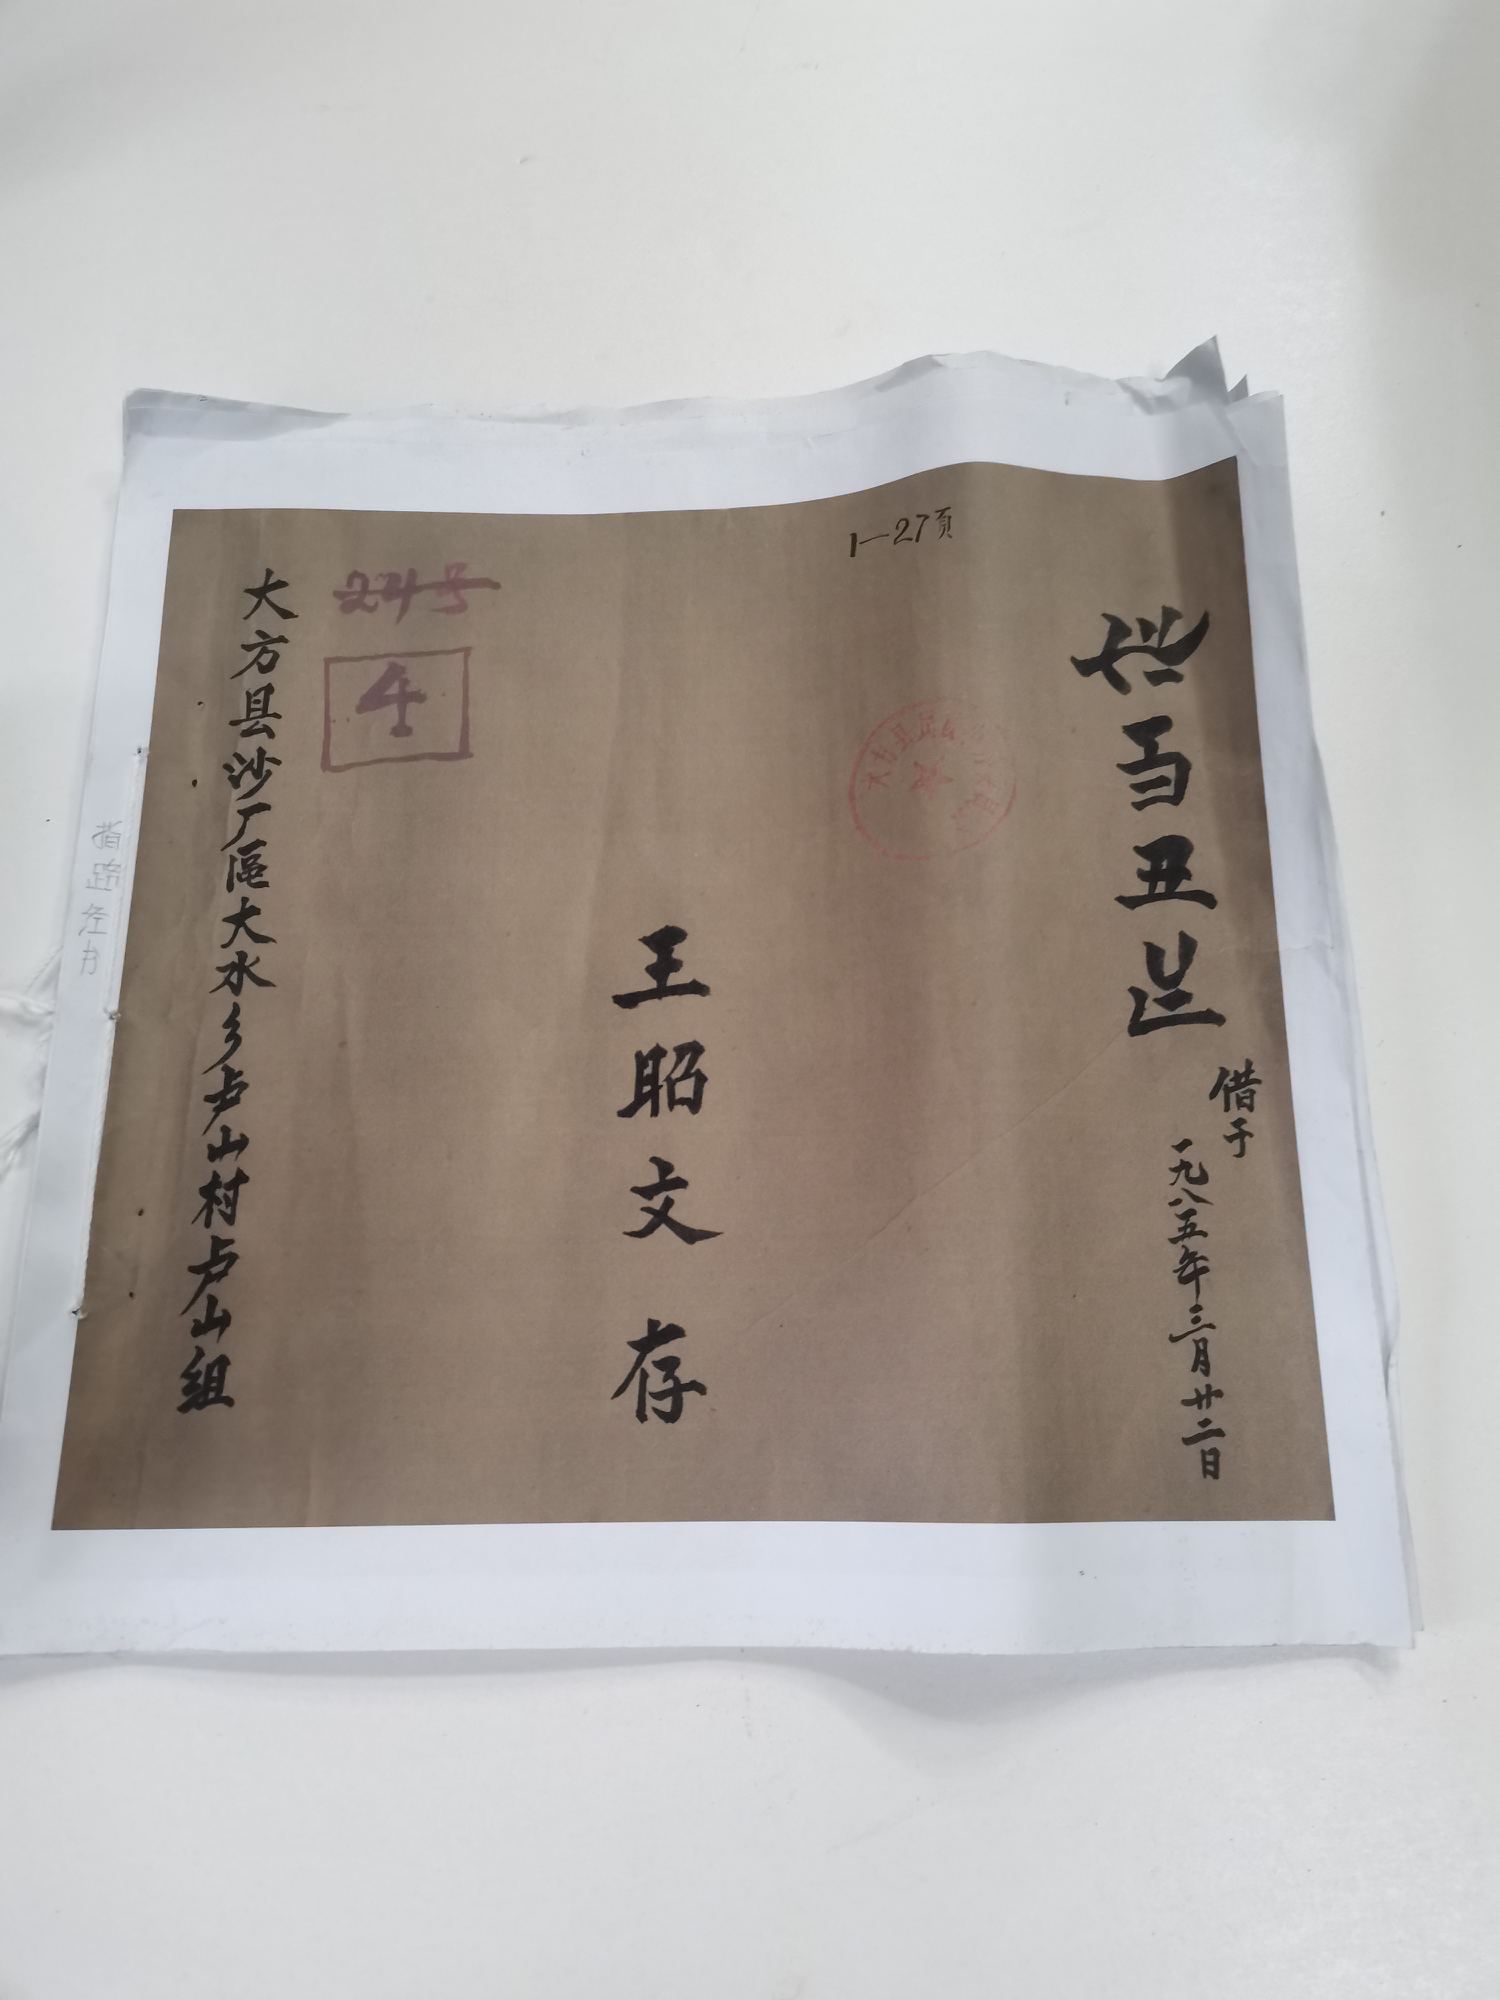 1—27页
借于
一九八五年三月廿二日
王昭文存
24号
4
大方县沙厂区大水乡卢山村卢山组
指路经书